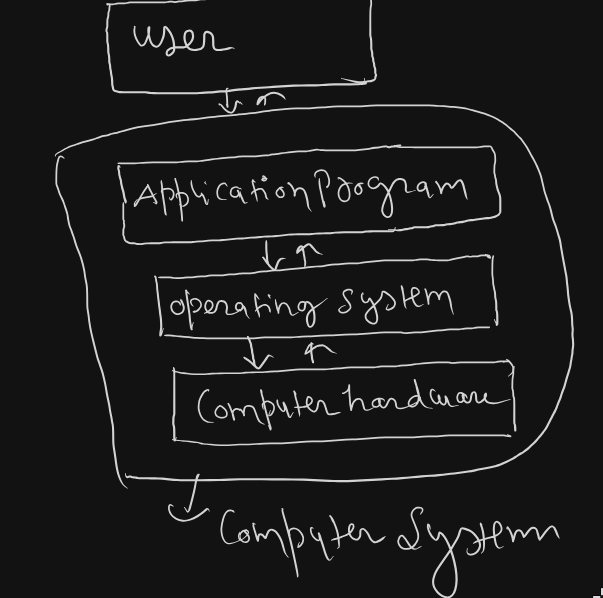 user
Application Program
operating system
Computer hardware
Computer System